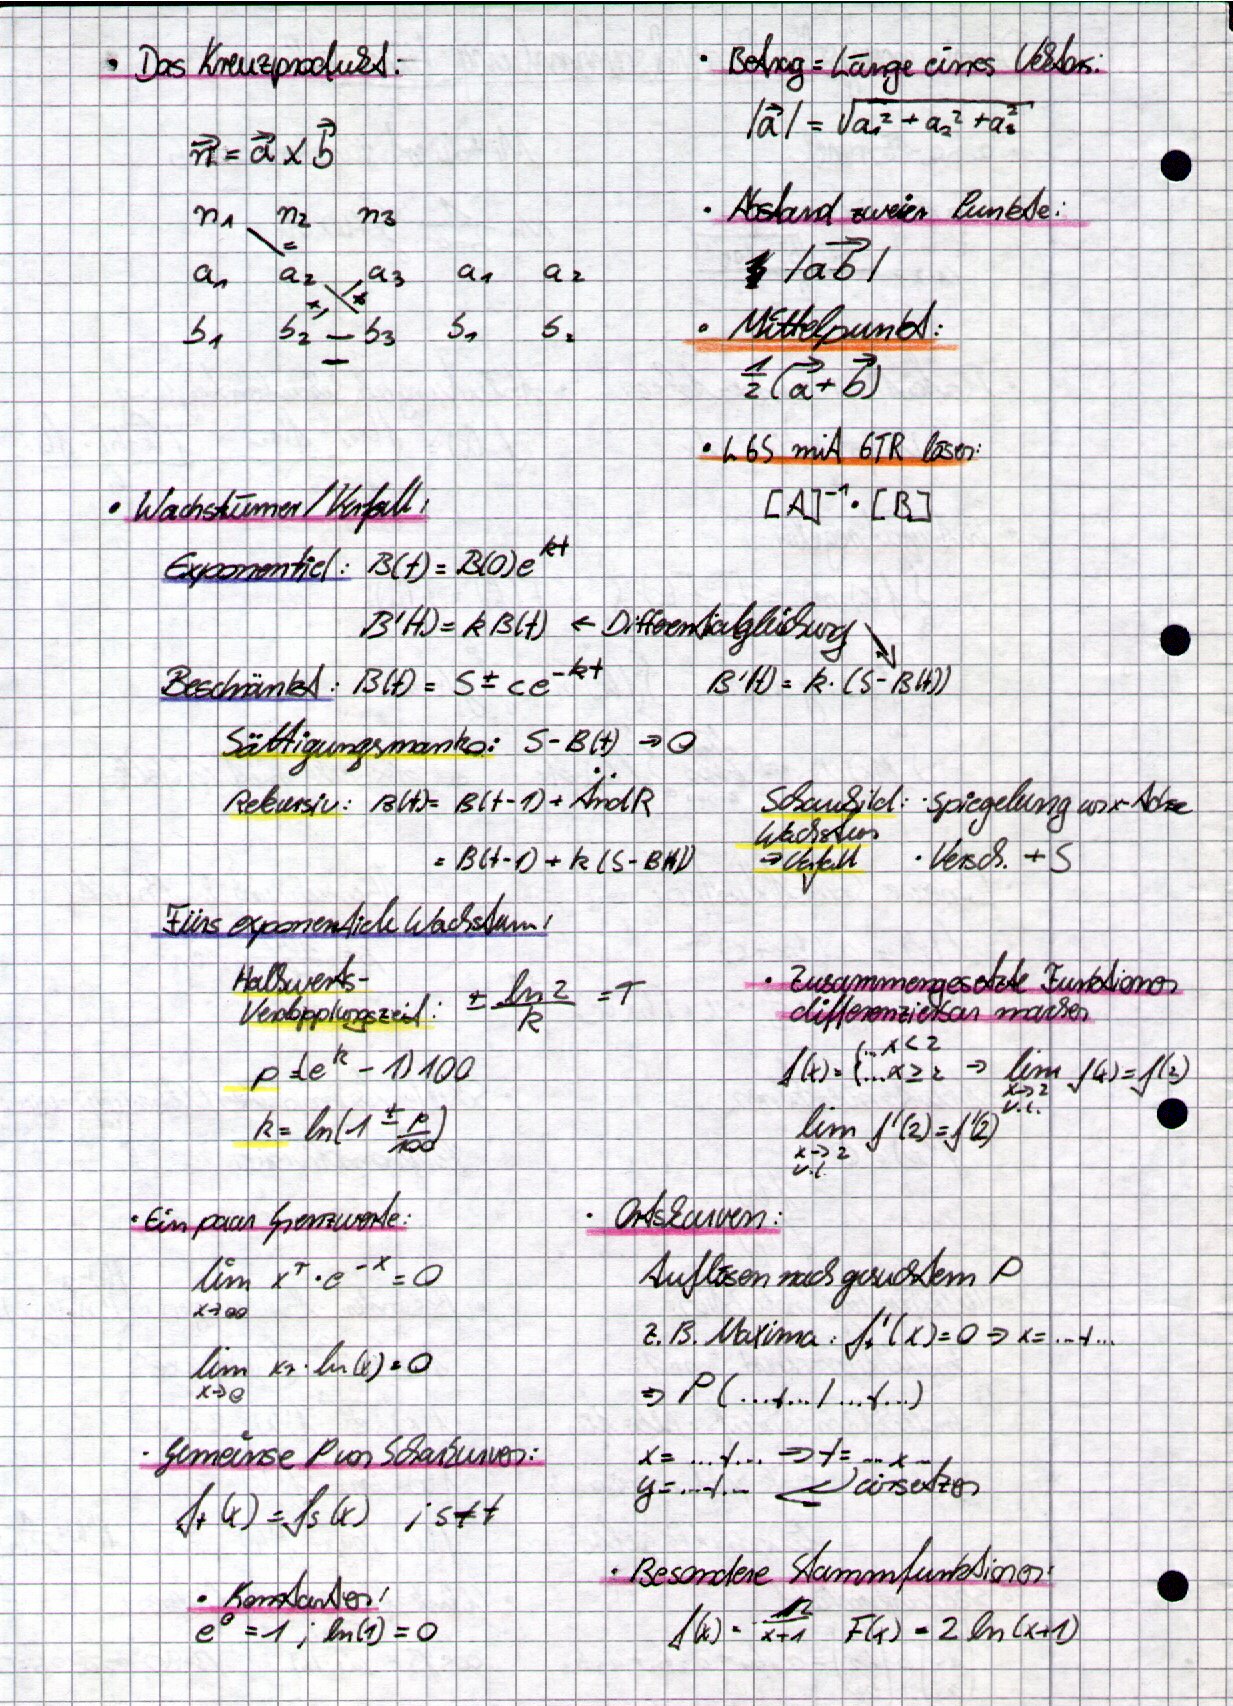 • Das Kreuzprodukt:
n⃗ = a⃗ × b⃗
n₁ n₂ n₃
=
a₁ a₂ a₃ a₁ a₂
b₁ b₂ – b₃ b₁ b₂
• Betrag = Länge eines Vektors:
|a⃗| = √(a₁² + a₂² + a₃²)
• Abstand zweier Punkte:
|ab⃗|
• Mittelpunkt:
1/2 (a⃗ + b⃗)
• LGS mit GTR lösen:
[A]⁻¹ • [B]
• Wachstümer / Verfall:
Exponentiel: B(t) = B(0)e^kt
B'(t) = k B(t) ← Differentialgleichung ↘
Beschränkt: B(t) = S ± ce^-kt B'(t) = k · (S - B(t))
Sättigungsmanko: S - B(t) → 0
Rekursiv: B(t) = B(t-1) + ÄndR
= B(t-1) + k (S - B(t))
Schaubild: · Spiegelung an x-Achse
Wachstum
→ Verfall · Versch. + S
Fürs exponentielle Wachstum:
Halbwerts-
Verdopplungszeit: ± ln 2 / k = T
p = (e^k - 1) 100
k = ln(1 ± p/100)
• Zusammengesetzte Funktionen
differenzierbar machen
f(x) = {... x < 2
{... x ≥ 2 → lim f(x) = f(2)
x→2
v.l.
lim f'(2) = f'(2)
x→2
v.l.
• Ein paar Grenzwerte:
lim x^r · e^-x = 0
x→∞
lim x^r · ln(x) = 0
x→0
• Gemeinse P von Scharkurven:
fₜ(x) = fₛ(x) ; s ≠ t
• Konstanten:
e⁰ = 1 ; ln(1) = 0
• Ortskurven:
Auflösen nach gesuchtem P
z.B. Maxima: fₜ'(x) = 0 ⇒ x = ...t...
⇒ P (...t... / ...t...)
x = ...t... ⇒ t = ...x...
y = ...t... einsetzen
• Besondere Stammfunktionen:
f(x) = 2/(x+1) F(x) = 2 ln(x+1)